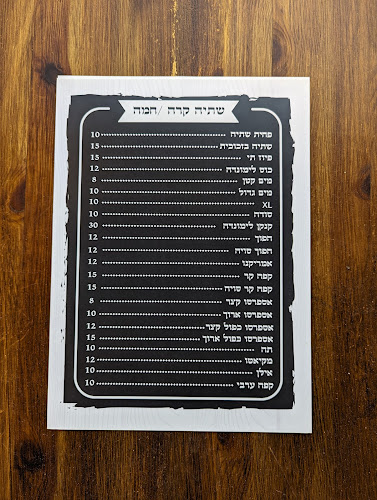 שתיה קרה /חמה
פחית שתיה 10
שתיה בזכוכית 15
פיוז תי 15
כוס לימונדה 12
מים קטן 8
מים גדול 10
XL 10
סודה 10
קנקן לימונדה 30
הפוך 12
הפוך סויה 12
אמריקנו 12
קפה קר 15
קפה קר סויה 15
אספרסו קצר 8
אספרסו ארוך 10
אספרסו כפול קצר 12
אספרסו כפול ארוך 15
תה 10
מקיאטו 12
אילן 10
קפה ערבי 10